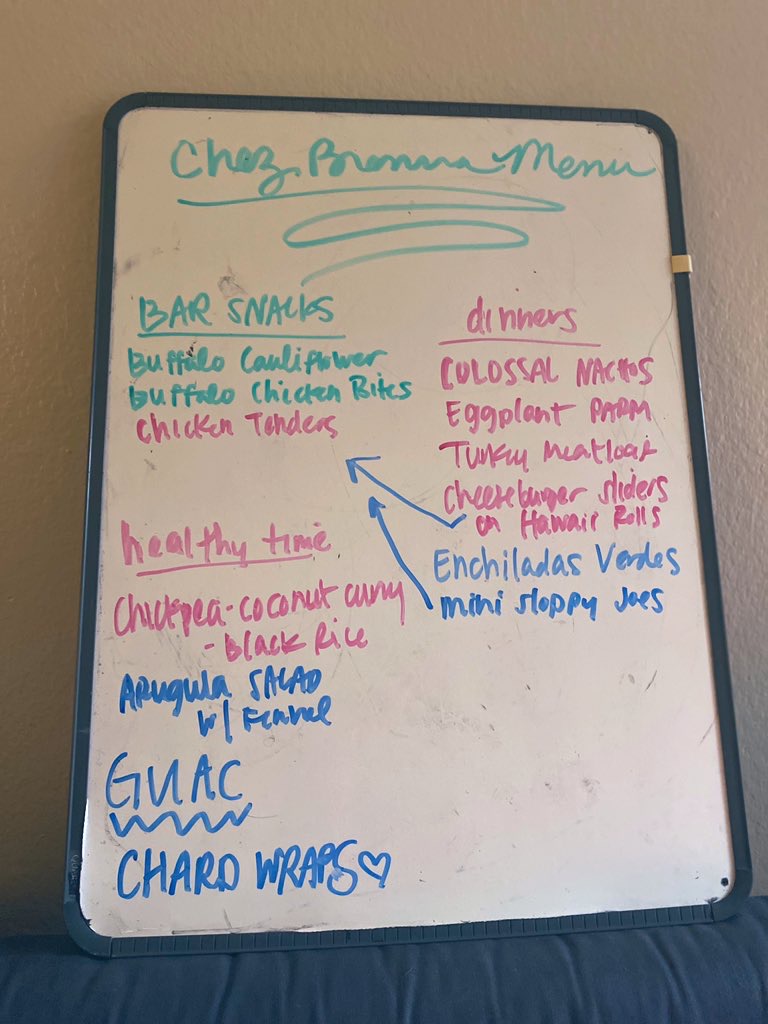 Chez Brenna Menu
BAR SNACKS
Buffalo Cauliflower
buffalo Chicken Bites
Chicken Tenders
healthy time
Chickpea-coconut curry
- Black Rice
Arugula SALAD
w/ Fennel
GUAC
CHARD WRAPS♡
dinners
COLOSSAL NACHOS
Eggplant PARM
Turkey Meatloaf
Cheeseburger sliders
on Hawaii Rolls
Enchiladas Verdes
mini sloppy Joes